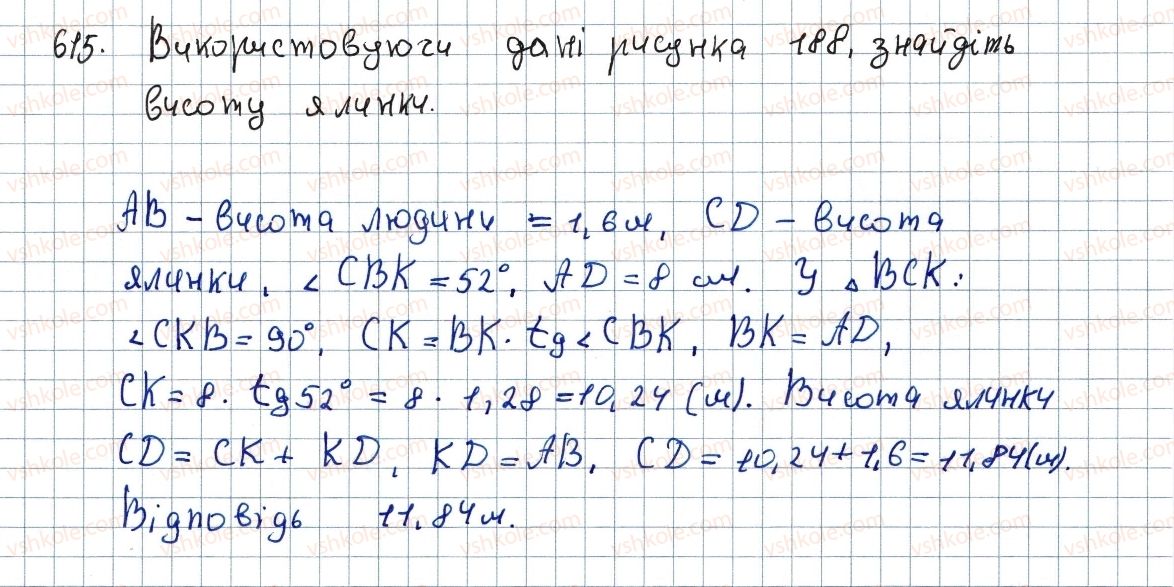 615. Використовуючи дані рисунка 188, знайдіть
висоту ялинки.
AB – висота людини = 1,6 м, CD – висота
ялинки, < CBK = 52°, AD = 8 см. У △ BCK:
< CKB = 90°, CK = BK · tg < CBK, BK = AD,
CK = 8 · tg 52° = 8 · 1,28 = 10,24 (м). Висота ялинки
CD = CK + KD, KD = AB, CD = 10,24 + 1,6 = 11,84 (м).
Відповідь 11,84 м.